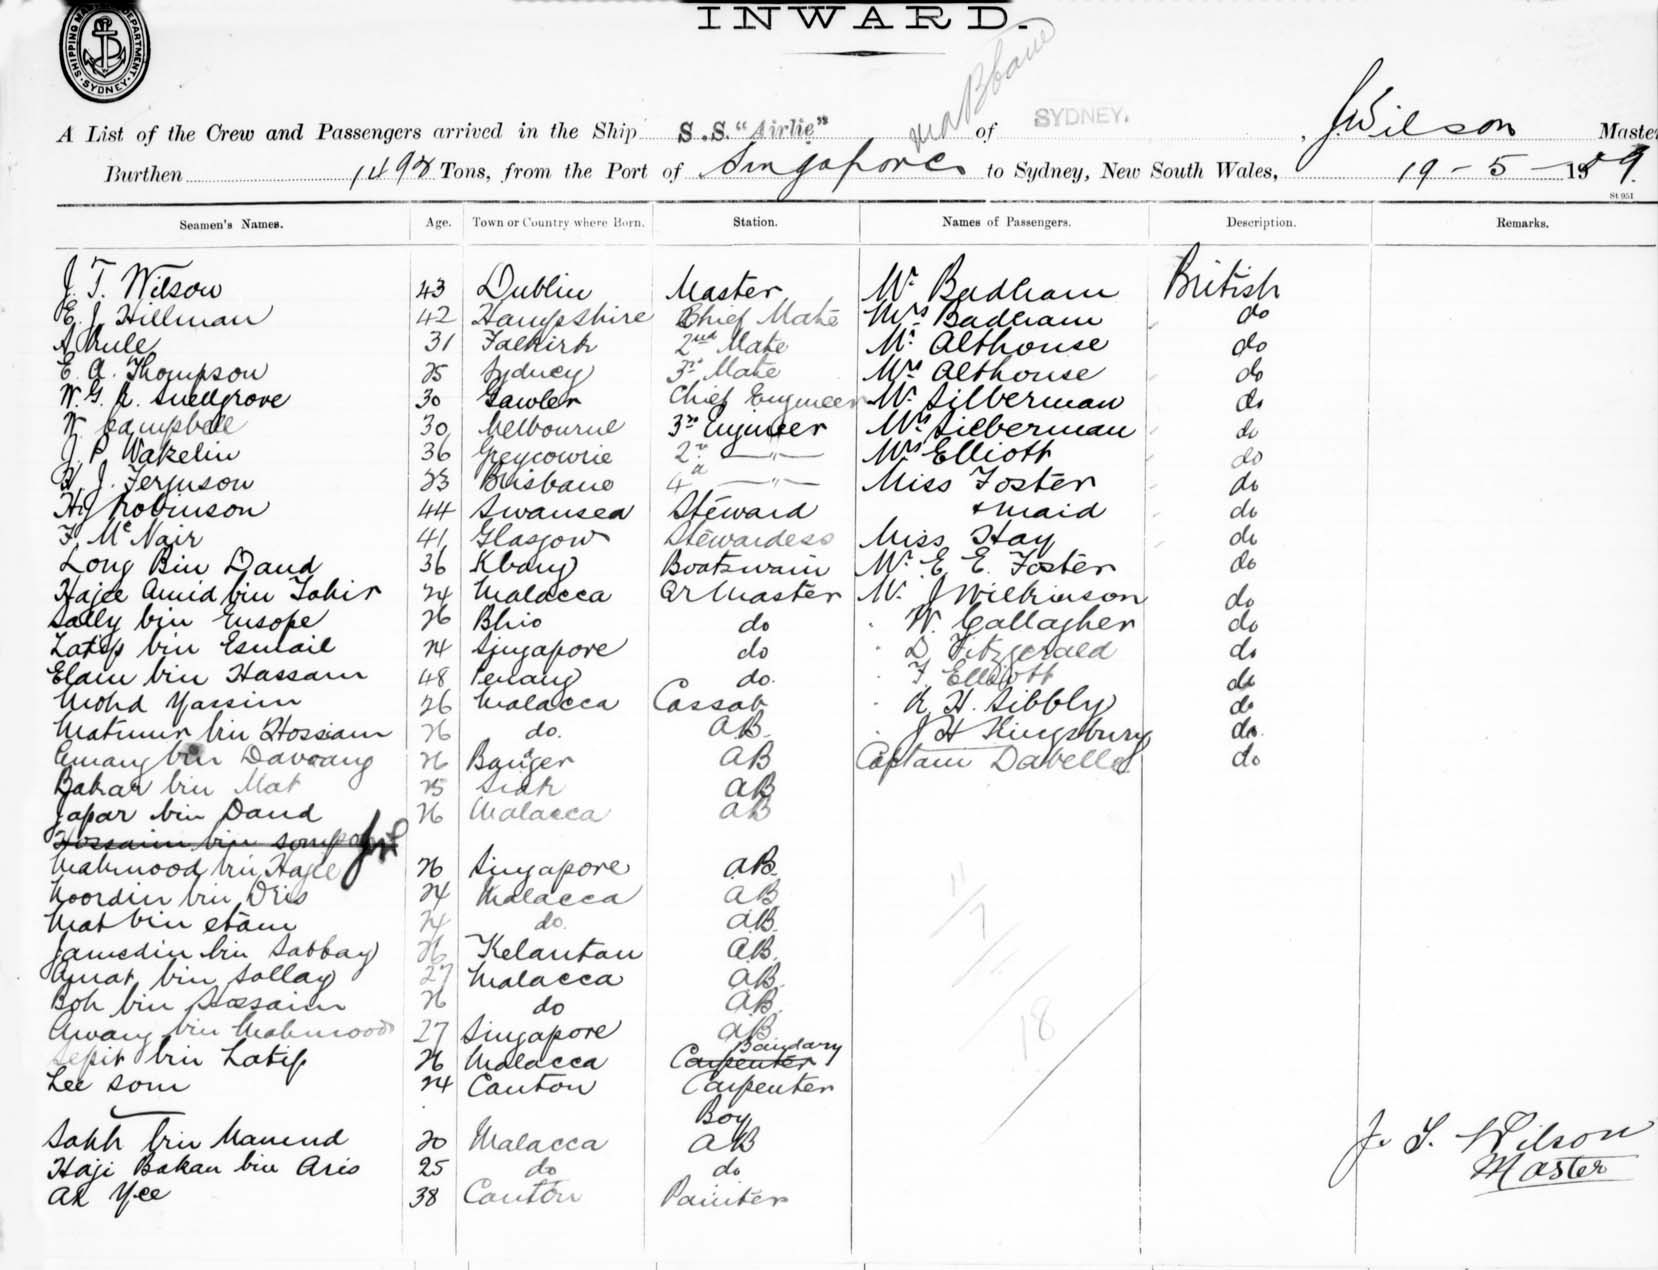 INWARD.
SHIPPING MASTER'S DEPARTMENT. SYDNEY.
via Bbane
A List of the Crew and Passengers arrived in the Ship S.S. "Airlie" of SYDNEY. , J. Wilson Master
Burthen 1492 Tons, from the Port of Singapore to Sydney, New South Wales, 19-5-1909.
St 951
Seamen's Names. Age. Town or Country where Born. Station. Names of Passengers. Description. Remarks.
J. T. Wilson 43 Dublin Master Mr Badham British
E. J. Hillman 42 Hampshire Chief Mate Mrs Badham do
A Rule 31 Falkirk 2nd Mate Mr Althouse do
E. A. Thompson 25 Sydney 3rd Mate Mrs Althouse do
W. G. R. Snellgrove 30 Gawler Chief Engineer Mr Silberman do
W. Campbell 30 Melbourne 3rd Engineer Mrs Silberman do
J. P. Wakelin 36 2nd —"— Mrs Elliott do
J. Ferguson 23 Brisbane 4th —"— Miss Foster do
Hy Robinson 44 Swansea Steward & maid do
F. McNair 41 Glasgow Stewardess Miss Hay do
Long Bin Daud 36 Boatswain Mr E. E. Foster do
Hajee Amid bin Tahir 24 Malacca Qr Master Mr J Wilkinson do
Sally bin Eusope 26 Rhio do " W. Gallagher do
Latip bin Esmail 24 Singapore do " D Fitzgerald do
Elam bin Hassam 48 Penang do. " F. Elliott do
Mohd Yassim 26 Malacca Cassab " R H. Sibbly do
Matnur bin Hossiam 26 do. AB. " J H Kingsbury do.
Amang bin Davoang 26 Banger AB Captain Dabelle do
Bakar bin Mat 25 Siak AB
Japar bin Daud 26 Malacca AB
Hossaim bin
Mahmood bin Hajee 26 Singapore AB.
Noordin bin Dris 24 Malacca AB
Mat bin etam 24 do. AB.
Jamedin bin Sabbay 26 Kelantan AB.
Amat bin Sallay 27 Malacca AB.
Boh bin Hossaim 26 do AB.
Awang bin Mahmood 27 Singapore AB
Sepit bin Latip 26 Malacca Carpenter Bandary
Lee Som 24 Canton Carpenter
Boy
Sakh bin Mamud 20 Malacca AB
Haji Bakar bin Aris 25 do do
Ah Yee 38 Canton Painter
11
7
18
J. T. Wilson
Master